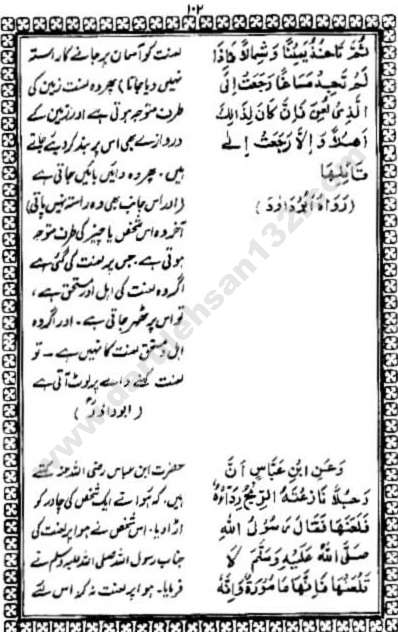 ۱۰۲
ثُمَّ تَاخُذُ يَمِيْنًا وَّ شِمَالًا فَاِذَا
لَمْ تَجِدْ مَسَاغًا رَجَعَتْ اِلَى
الَّذِىْ لُعِنَ فَاِنْ كَانَ لِذَالِكَ
اَهْلًا وَ اِلَّا رَجَعَتْ اِلٰى
قَائِلِهَا
(رَوَاهُ اَبُوْدَاوٗدَ)
وَعَنِ ابْنِ عَبَّاسٍ اَنَّ
رَجُلًا نَازَعَتْهُ الرِّيْحُ رِدَاءَهٗ
فَلَعَنَهَا فَقَالَ رَسُوْلُ اللّٰهِ
صَلَّى اللّٰهُ عَلَيْهِ وَسَلَّمَ لَا
تَلْعَنْهَا فَاِنَّهَا مَامُوْرَةٌ وَاِنَّهٗ
لعنت کو آسمان پر جانے کا راستہ
نہیں دیا جاتا) پھر وہ لعنت زمین کی
طرف متوجہ ہوتی ہے اور زمین کے
دروازے بھی اس پر بند کر دیئے جاتے
ہیں۔ پھر وہ دائیں بائیں جاتی ہے
(اور اس جانب بھی وہ راستہ نہیں پاتی)
آخر وہ اس شخص یا چیز کی طرف متوجہ
ہوتی ہے، جس پر لعنت کی گئی ہے
اگر وہ لعنت کی اہل اور مستحق ہے،
تو اس پر ٹھہر جاتی ہے۔ اور اگر وہ
اہل و مستحق لعنت کا نہیں ہے ۔ تو
لعنت کرنے والے پر لوٹ آتی ہے
(ابوداؤد)
حضرت ابن عباس رضی اللہ عنہ کہتے
ہیں، کہ ہوا نے ایک شخص کی چادر کو
اڑا دیا۔ اس شخص نے ہوا پر لعنت کی
جناب رسول اللہ صلی اللہ علیہ وسلم نے
فرمایا۔ ہوا پر لعنت نہ کرو اس لئے
www.darulehsan132.com